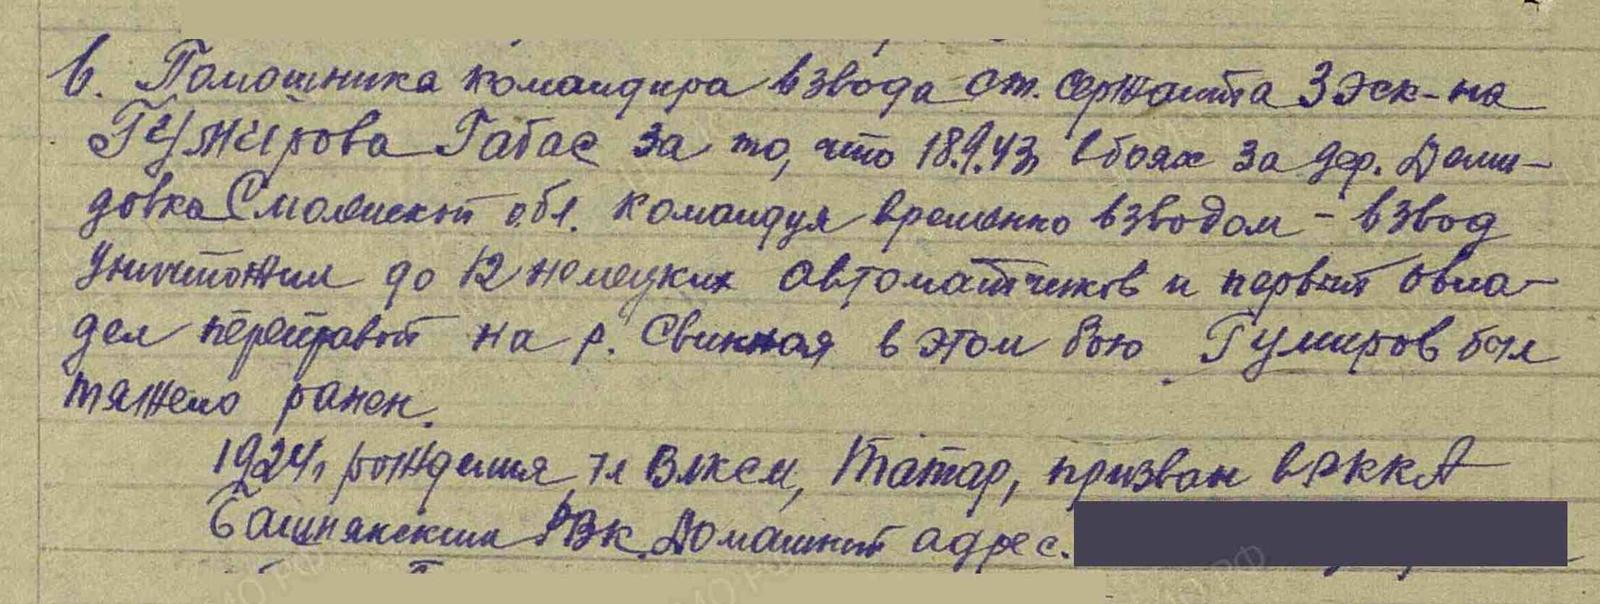 6. Помошника командира взвода ст. сержанта 3 эск-на
Гумирова Габас за то, что 18.9.43, в боях за дер. Деми-
довка Смоленской обл. командуя временно взводом - взвод
уничтожил до 12 немецких автоматчиков и первый овла-
дел переправой на р. Свинная в этом бою Гумиров был
тяжело ранен.
1924г рождения чл ВЛКСМ, татар, призван в РККА
Башнякским РВК. Домашний адрес.